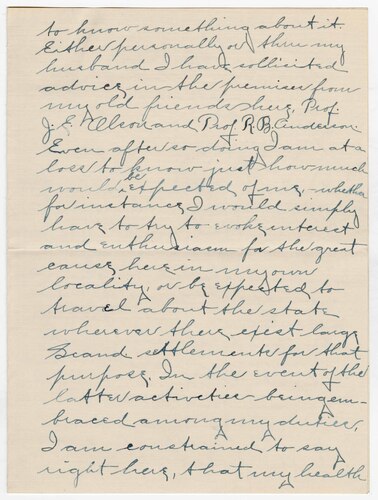 to know something about it.
Either personally or thru my
husband I have sollicited
advice in the premises from
my old friends here, Prof.
J. E. Olson and Prof R. B. Anderson
Even after so doing I am at a
loss to know just how much
would be expected of me, - whether
for instance I would simply
have to try to evoke interest
and enthusiasm for the great
cause here in my own
locality, or be expected to
travel about the state
wherever there exist large
Scand settlements for that
purpose. In the event of the
latter activities being em-
braced among my duties,
I am constrained to say
right here, that my health